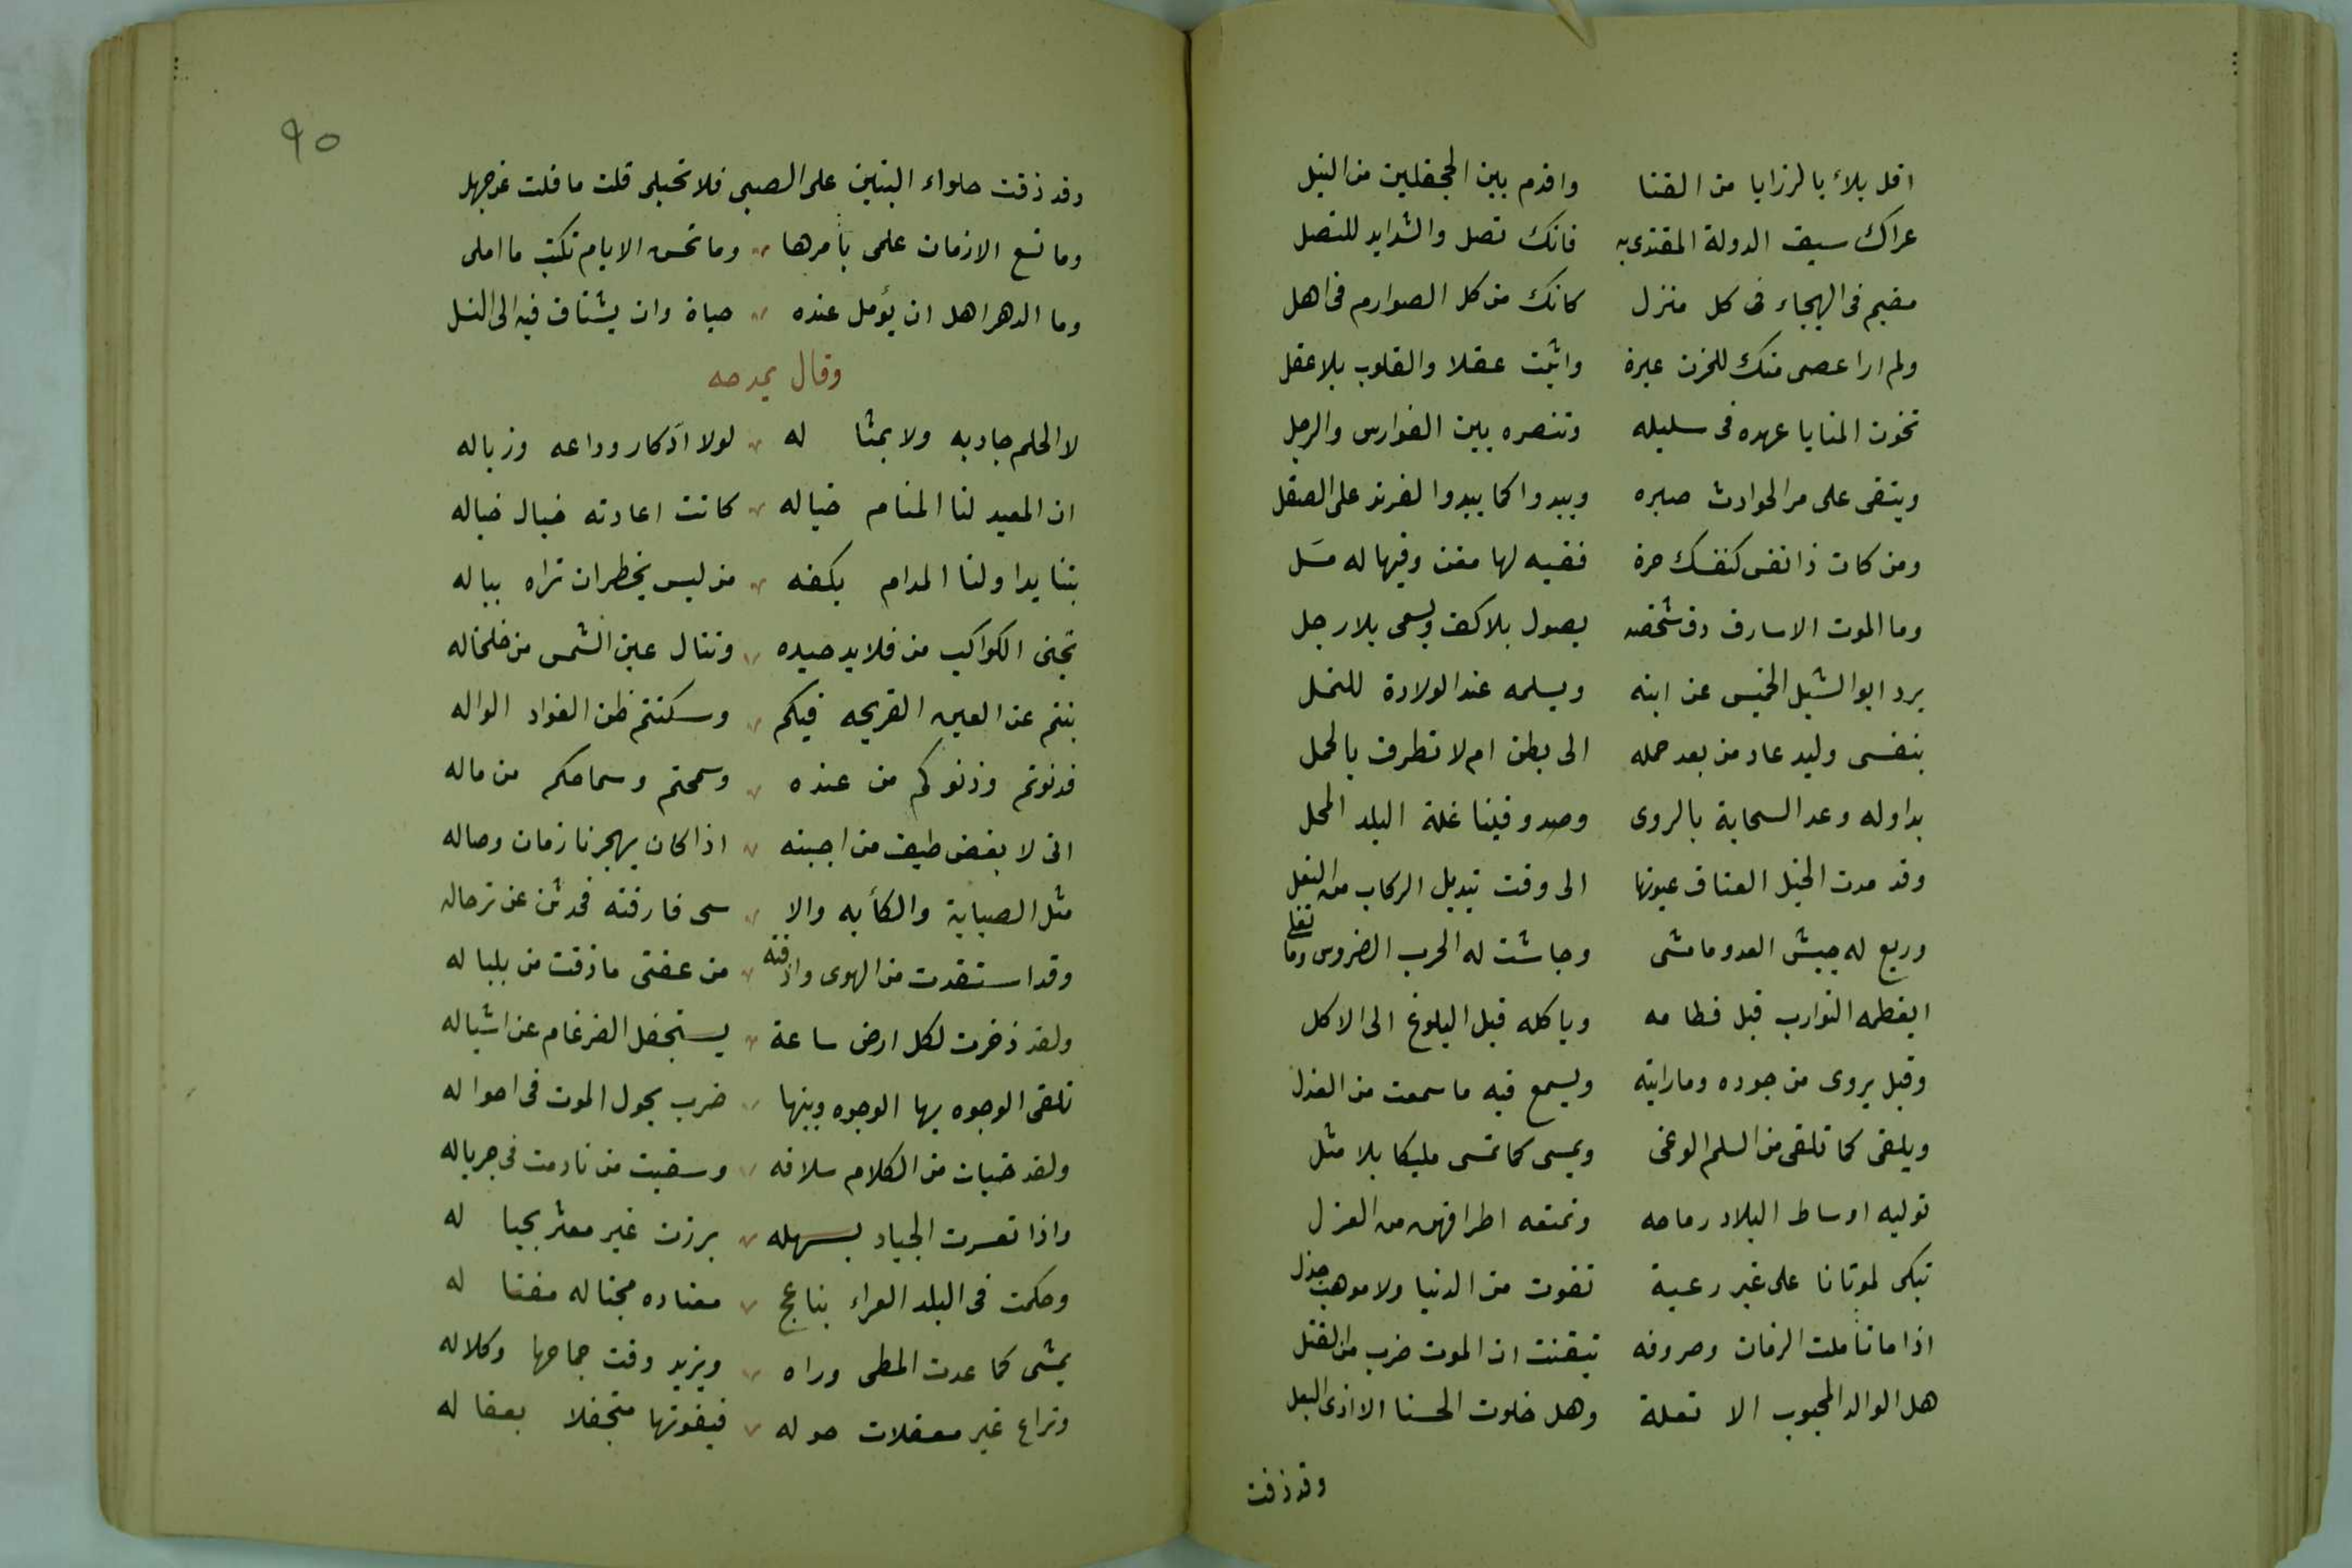 اقل بلاء بالرزايا من القنا واقدم بين الجحفلين من النبل
عزاك سيف الدولة المقتدى به فانك نصل والشدايد للنصل
مقيم فى الهيجاء فى كل منزل كانك من كل الصوارم فى اهل
ولم ارا عصى منك للحزن عبرة واثبت عقلا والقلوب بلا عقل
تخون المنايا عهده فى سليله وتنصره بين الفوارس والرجل
ويبقى على مر الحوادث صبره ويبدوا كما يبدوا الفرند على الصقل
ومن كان ذا نفس كنفسك حرة ففيه لها مغن وفيها له مسل
وما الموت الا سارق دق شخصه يصول بلا كف ويسعى بلا رجل
يرد ابو الشبل الخميس عن ابنه ويسلمه عند الولادة للنمل
بنفسى وليد عاد من بعد حمله الى بطن ام لا تطرق بالحمل
بدا وله وعد السحابة بالروى وصد وفينا غلة البلد المحل
وقد مدت الخيل العتاق عيونها الى وقت تبديل الركاب من النعل
وريع له جيش العدو وما مشى وجاشت له الحرب الضروس وما تغلى
ايفطمه التوارب قبل فطامه وياكله قبل البلوغ الى الاكل
وقبل يروى من جوده ما رايته ويسمع فيه ما سمعت من العذل
ويلقى كما تلقى من السلم الوغى ويمسى كما تمسى مليكا بلا مثل
توليه اوساط البلاد رماحه وتمنعه اطرافهن من العزل
تبكى لموتانا على غير رعبة تفوت من الدنيا ولا موهب جذل
اذا ما تأملت الزمان وصروفه تيقنت ان الموت ضرب من القتل
هل الوالد المحبوب الا تعلة وهل خلوت الحسنا الا اذى البعل
وقد ذقت
٩٥
وقد ذقت حلواء البنين على الصبى فلا تحبلى قلت ما قلت عن جهل
وما تسع الازمان علمى بأمرها وما تحسن الايام تكتب ما املى
وما الدهر اهل ان يؤمل عنده حياة وان يشتاق فيه الى النسل
وقال يمدحه
لا الحلم جاد به ولا بمثاله لولا ادّكار وداعه وزياله
ان المعيد لنا المنام خياله كانت اعادته خيال خياله
بتنا يداولنا المدام بكفه من ليس يخطر ان نراه بباله
تجنى الكواكب من قلايد جيده وننال عين الشمس من خلخاله
بنتم عن العين القريحه فيكم وسكنتم ظن الفواد الواله
فدنوتم ودنوكم من عنده وسمحتم وسماحكم من ماله
انى لا بغض طيف من احببته اذا كان يهجرنا زمان وصاله
مثل الصبابة والكأبه والا سى فارقته فحدثن عن ترحاله
وقد استقدت من الهوى واذقته من عفتى ما ذقت من بلباله
ولقد ذخرت لكل ارض ساعة يستجفل الضرغام عن اشباله
تلقى الوجوه بها الوجوه وبينها ضرب يجول الموت فى احواله
ولقد خبات من الكلام سلافه وسقيت من نادمت فى جرياله
واذا تعسرت الجياد بسهله برزت غير معثر بجياله
وحكمت فى البلد العراء بناعج معتاده مجتاله مغتاله
يمشى كما عدت المطى وراه ويزيد وقت جماحها وكلاله
وتراع غير معقلات حوله فيفوتها متجفلا بعقاله